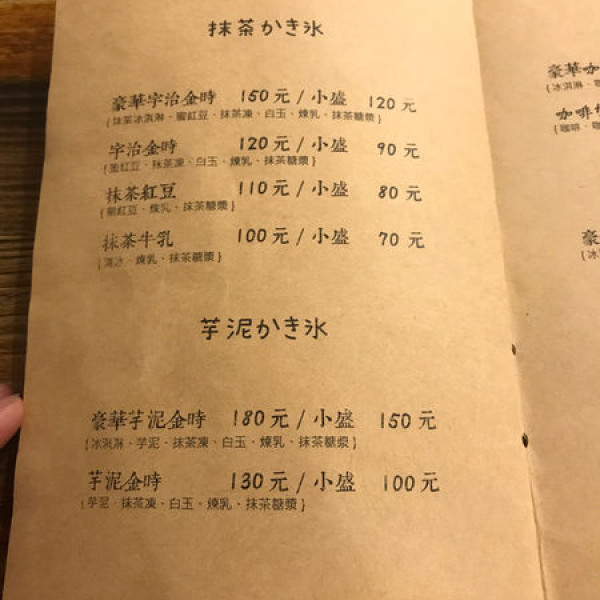 抹茶かき氷
豪華宇治金時 150元/小盛 120元
{抹茶冰淇淋、蜜紅豆、抹茶凍、白玉、煉乳、抹茶糖漿}
宇治金時 120元/小盛 90元
{蜜紅豆、抹茶凍、白玉、煉乳、抹茶糖漿}
抹茶紅豆 110元/小盛 80元
{蜜紅豆、煉乳、抹茶糖漿}
抹茶牛乳 100元/小盛 70元
{清冰、煉乳、抹茶糖漿}
芋泥かき氷
豪華芋泥金時 180元/小盛 150元
{冰淇淋、芋泥、抹茶凍、白玉、煉乳、抹茶糖漿}
芋泥金時 130元/小盛 100元
{芋泥、抹茶凍、白玉、煉乳、抹茶糖漿}
豪華咖
{冰淇淋、
咖啡
{咖啡、
豪